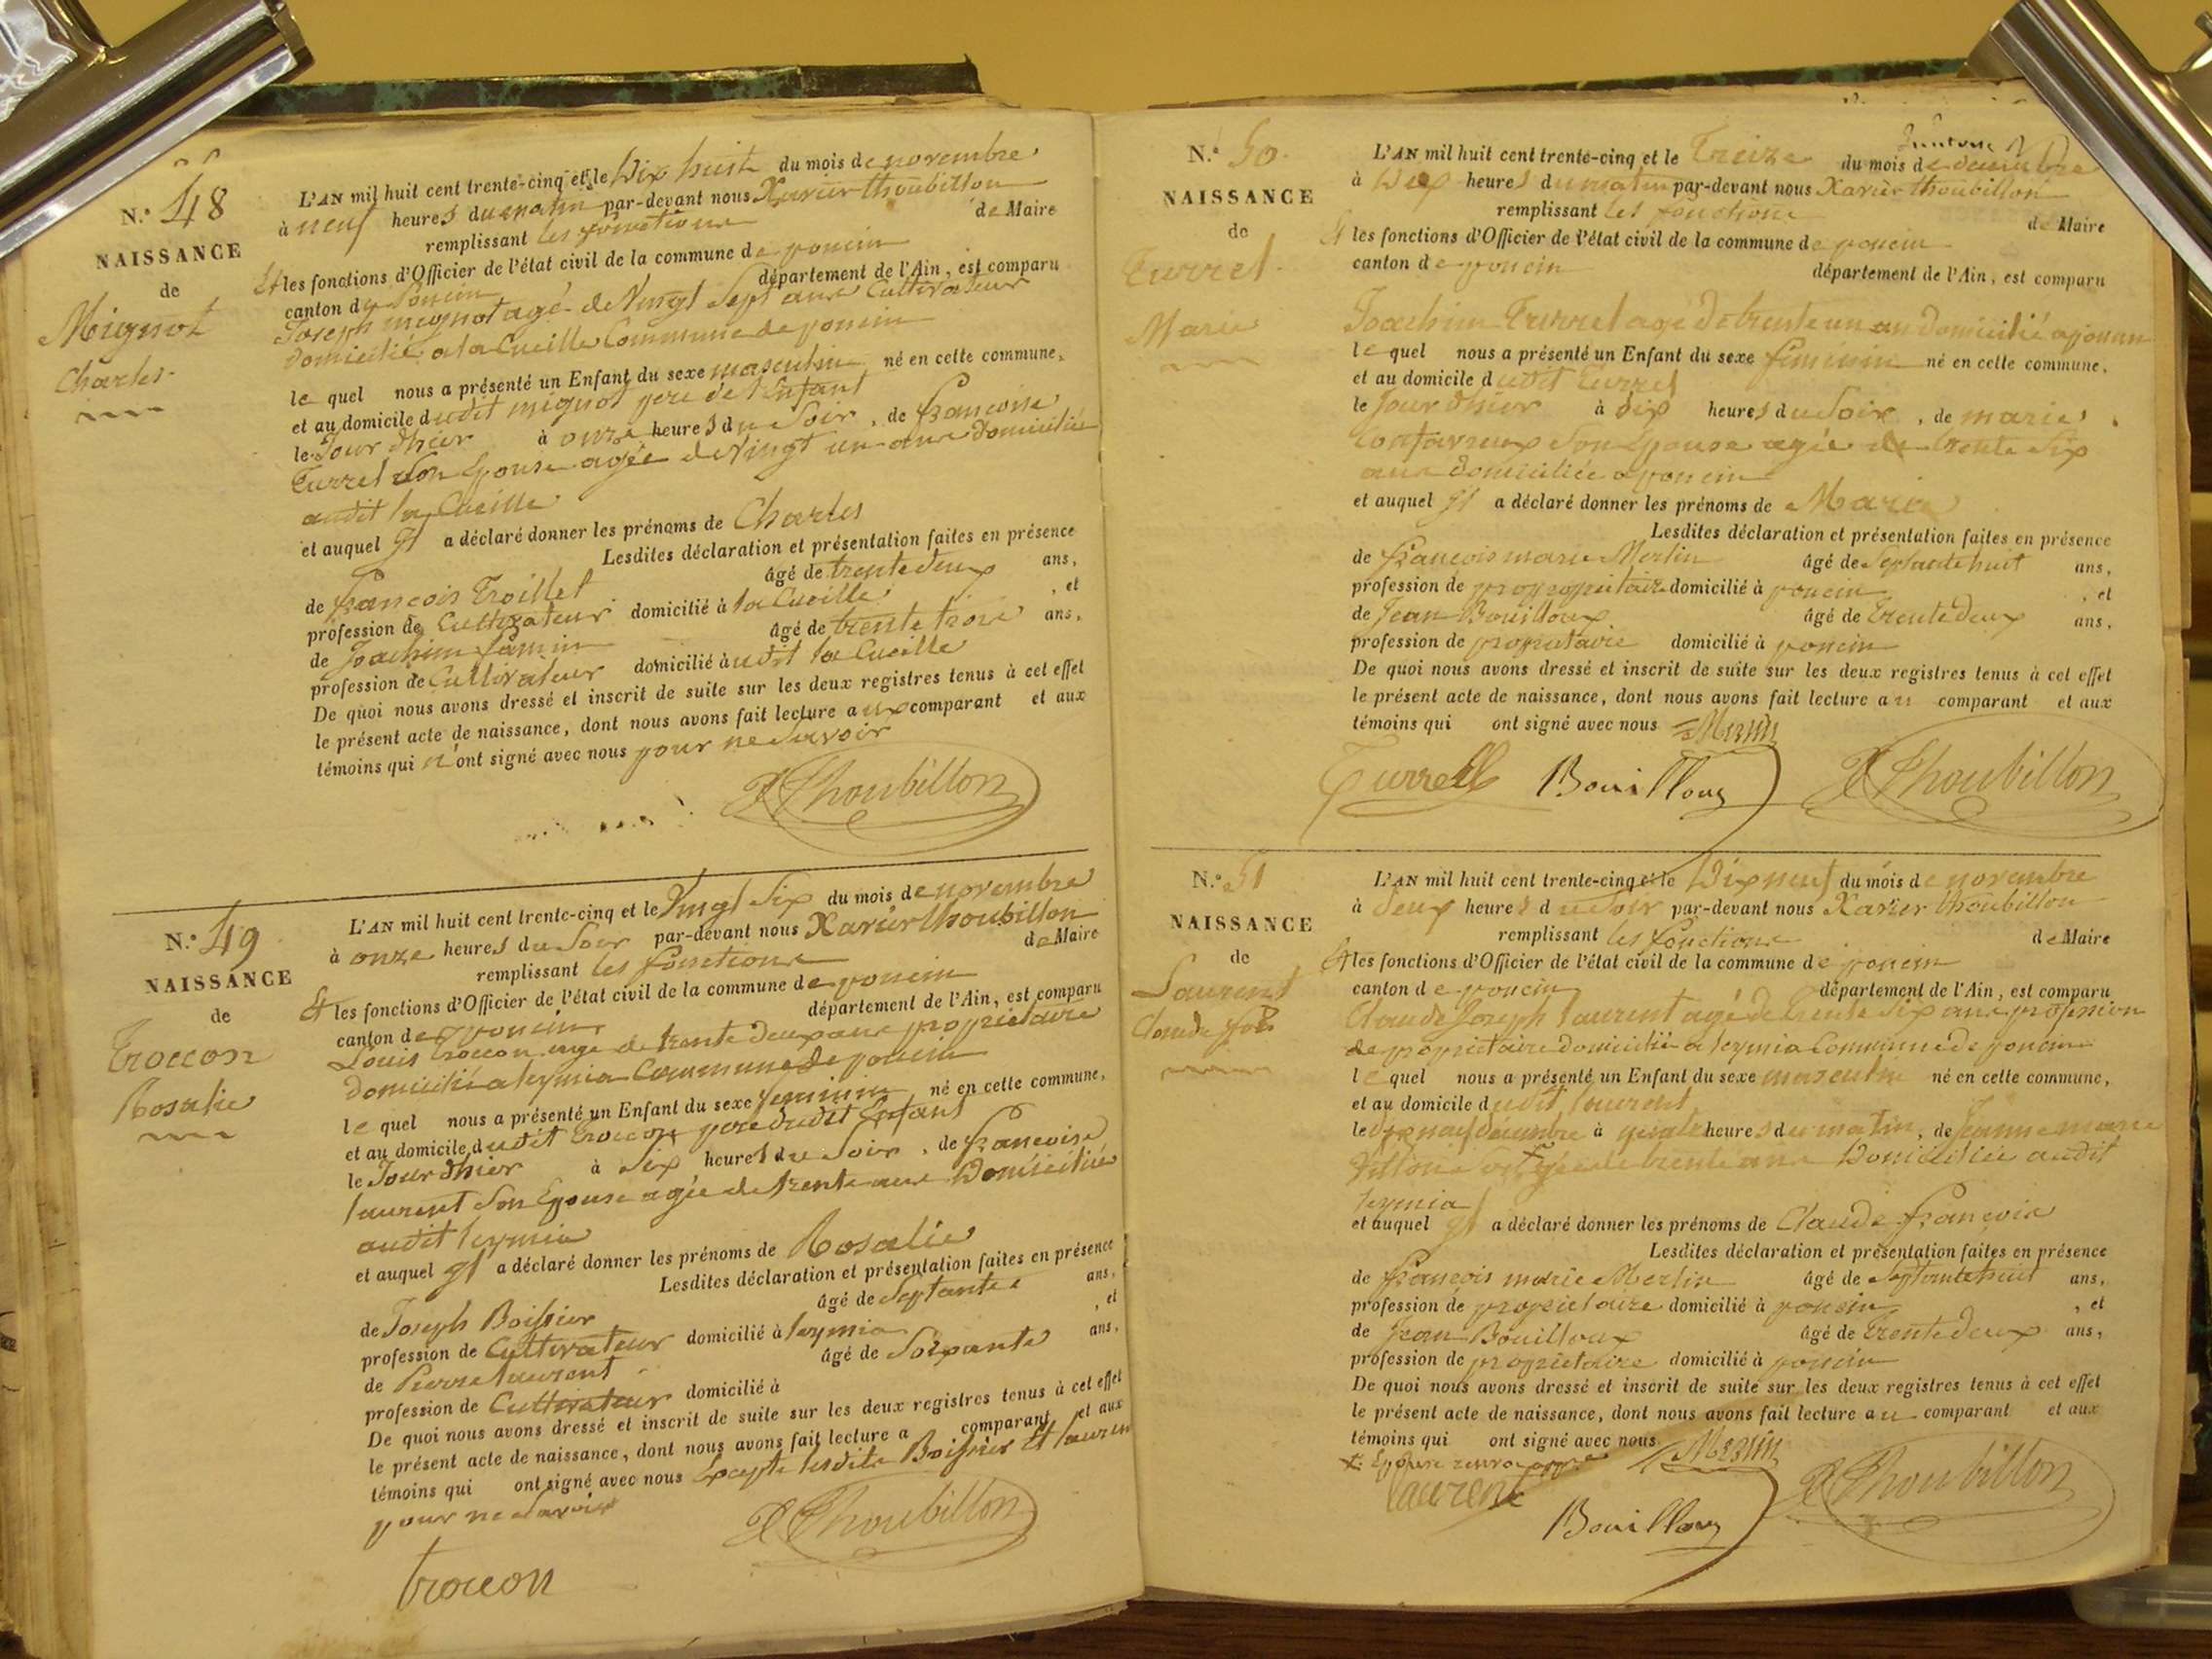 N.° 48
NAISSANCE
de
Mignot
Charles
L'AN mil huit cent trente-cinq et le Dix huit du mois de novembre
à neuf heures du matin par-devant nous Xavier thoubillon
remplissant les fonctions de Maire
Et les fonctions d'Officier de l'état civil de la commune de poncin
canton de Poncin département de l'Ain, est comparu
Joseph mignot agé de Vingt Sept ans Cultivateur
domicilié a la Cueille Commune de poncin
le quel nous a présenté un Enfant du sexe masculin né en cette commune,
et au domicile dudit mignot pere de l'Enfant
le Jour dhier à onze heures du Soir, de francoise
Turrel Son Epouse agée de Vingt un ans domiciliée
audit la Cueille
et auquel il a déclaré donner les prénoms de Charles
Lesdites déclaration et présentation faites en présence
de francois Troillet âgé de trente deux ans,
profession de Cultivateur domicilié à la Cueille, et
de Joachim famin âgé de trente trois ans,
profession de Cultivateur domicilié à udit la Cueille
De quoi nous avons dressé et inscrit de suite sur les deux registres tenus à cet effet
le présent acte de naissance, dont nous avons fait lecture aux comparant et aux
témoins qui n'ont signé avec nous pour ne Savoir
X Thoubillon
N.° 49
NAISSANCE
de
Troccon
Rosalie
L'AN mil huit cent trente-cinq et le Vingt Six du mois de novembre
à onze heures du Soir par-devant nous Xavier thoubillon
remplissant les fonctions de Maire
Et les fonctions d'Officier de l'état civil de la commune de poncin
canton de poncin département de l'Ain, est comparu
Louis troccon age de trente deux ans propriétaire
domicilié a leymia Commune de poncin
le quel nous a présenté un Enfant du sexe feminin né en cette commune,
et au domicile dudit Troccon pere dudit Enfant
le Jour dhier à Six heures du Soir, de francoise
laurent Son Epouse agée de trente ans Domiciliée
audit leymia
et auquel il a déclaré donner les prénoms de Rosalie
Lesdites déclaration et présentation faites en présence
de Joseph Boissier âgé de Septante ans,
profession de Cultivateur domicilié à leymia, et
de Pierre laurent âgé de Soixante ans,
profession de Cultivateur domicilié à
De quoi nous avons dressé et inscrit de suite sur les deux registres tenus à cet effet
le présent acte de naissance, dont nous avons fait lecture a comparant et aux
témoins qui ont signé avec nous Excepté lesdits Boissier Et laurent
pour ne Savoir
X Thoubillon
troccon
N.° 50
NAISSANCE
de
Turrel
Marie
L'AN mil huit cent trente-cinq et le Treize du mois de decembre
à Dix heures du matin par-devant nous Xavier thoubillon
remplissant les fonctions de Maire
Et les fonctions d'Officier de l'état civil de la commune de poncin
canton de poncin département de l'Ain, est comparu
Joachim Turrel agé de trente un an Domicilié a poncin
le quel nous a présenté un Enfant du sexe feminin né en cette commune,
et au domicile dudit Turrel
le Jour dhier à dix heures du Soir, de marie
Son Epouse agée de trente Six
ans domiciliée a poncin
et auquel il a déclaré donner les prénoms de Marie
Lesdites déclaration et présentation faites en présence
de francois marie Merlin âgé de Septante huit ans,
profession de propropriétaire domicilié à poncin, et
de Jean Bouilloux âgé de Trente Deux ans,
profession de propriétaire domicilié à poncin
De quoi nous avons dressé et inscrit de suite sur les deux registres tenus à cet effet
le présent acte de naissance, dont nous avons fait lecture au comparant et aux
témoins qui ont signé avec nous Merlin
Turrell Bouilloux X Thoubillon
N.° 51
NAISSANCE
de
Laurent
Claude fois
L'AN mil huit cent trente-cinq et le Dix neuf du mois de novembre
à deux heures du Soir par-devant nous Xavier thoubillon
remplissant les fonctions de Maire
Et les fonctions d'Officier de l'état civil de la commune de poncin
canton de poncin département de l'Ain, est comparu
Claude Joseph laurent agé de trente Six ans profession
de propriétaire domicilié a leymia Commune de poncin
le quel nous a présenté un Enfant du sexe masculin né en cette commune,
et au domicile dudit laurent
le dix neuf decembre à quatre heures du matin, de Jeanne marie
Son agée de trente ans Domiciliée audit
leymia
et auquel il a déclaré donner les prénoms de Claude francois
Lesdites déclaration et présentation faites en présence
de francois marie Merlin âgé de Septante huit ans,
profession de propriétaire domicilié à poncin, et
de Jean Bouilloux âgé de Trente deux ans,
profession de propriétaire domicilié à poncin
De quoi nous avons dressé et inscrit de suite sur les deux registres tenus à cet effet
le présent acte de naissance, dont nous avons fait lecture au comparant et aux
témoins qui ont signé avec nous Merlin
Epouse
laurent Bouilloux X Thoubillon